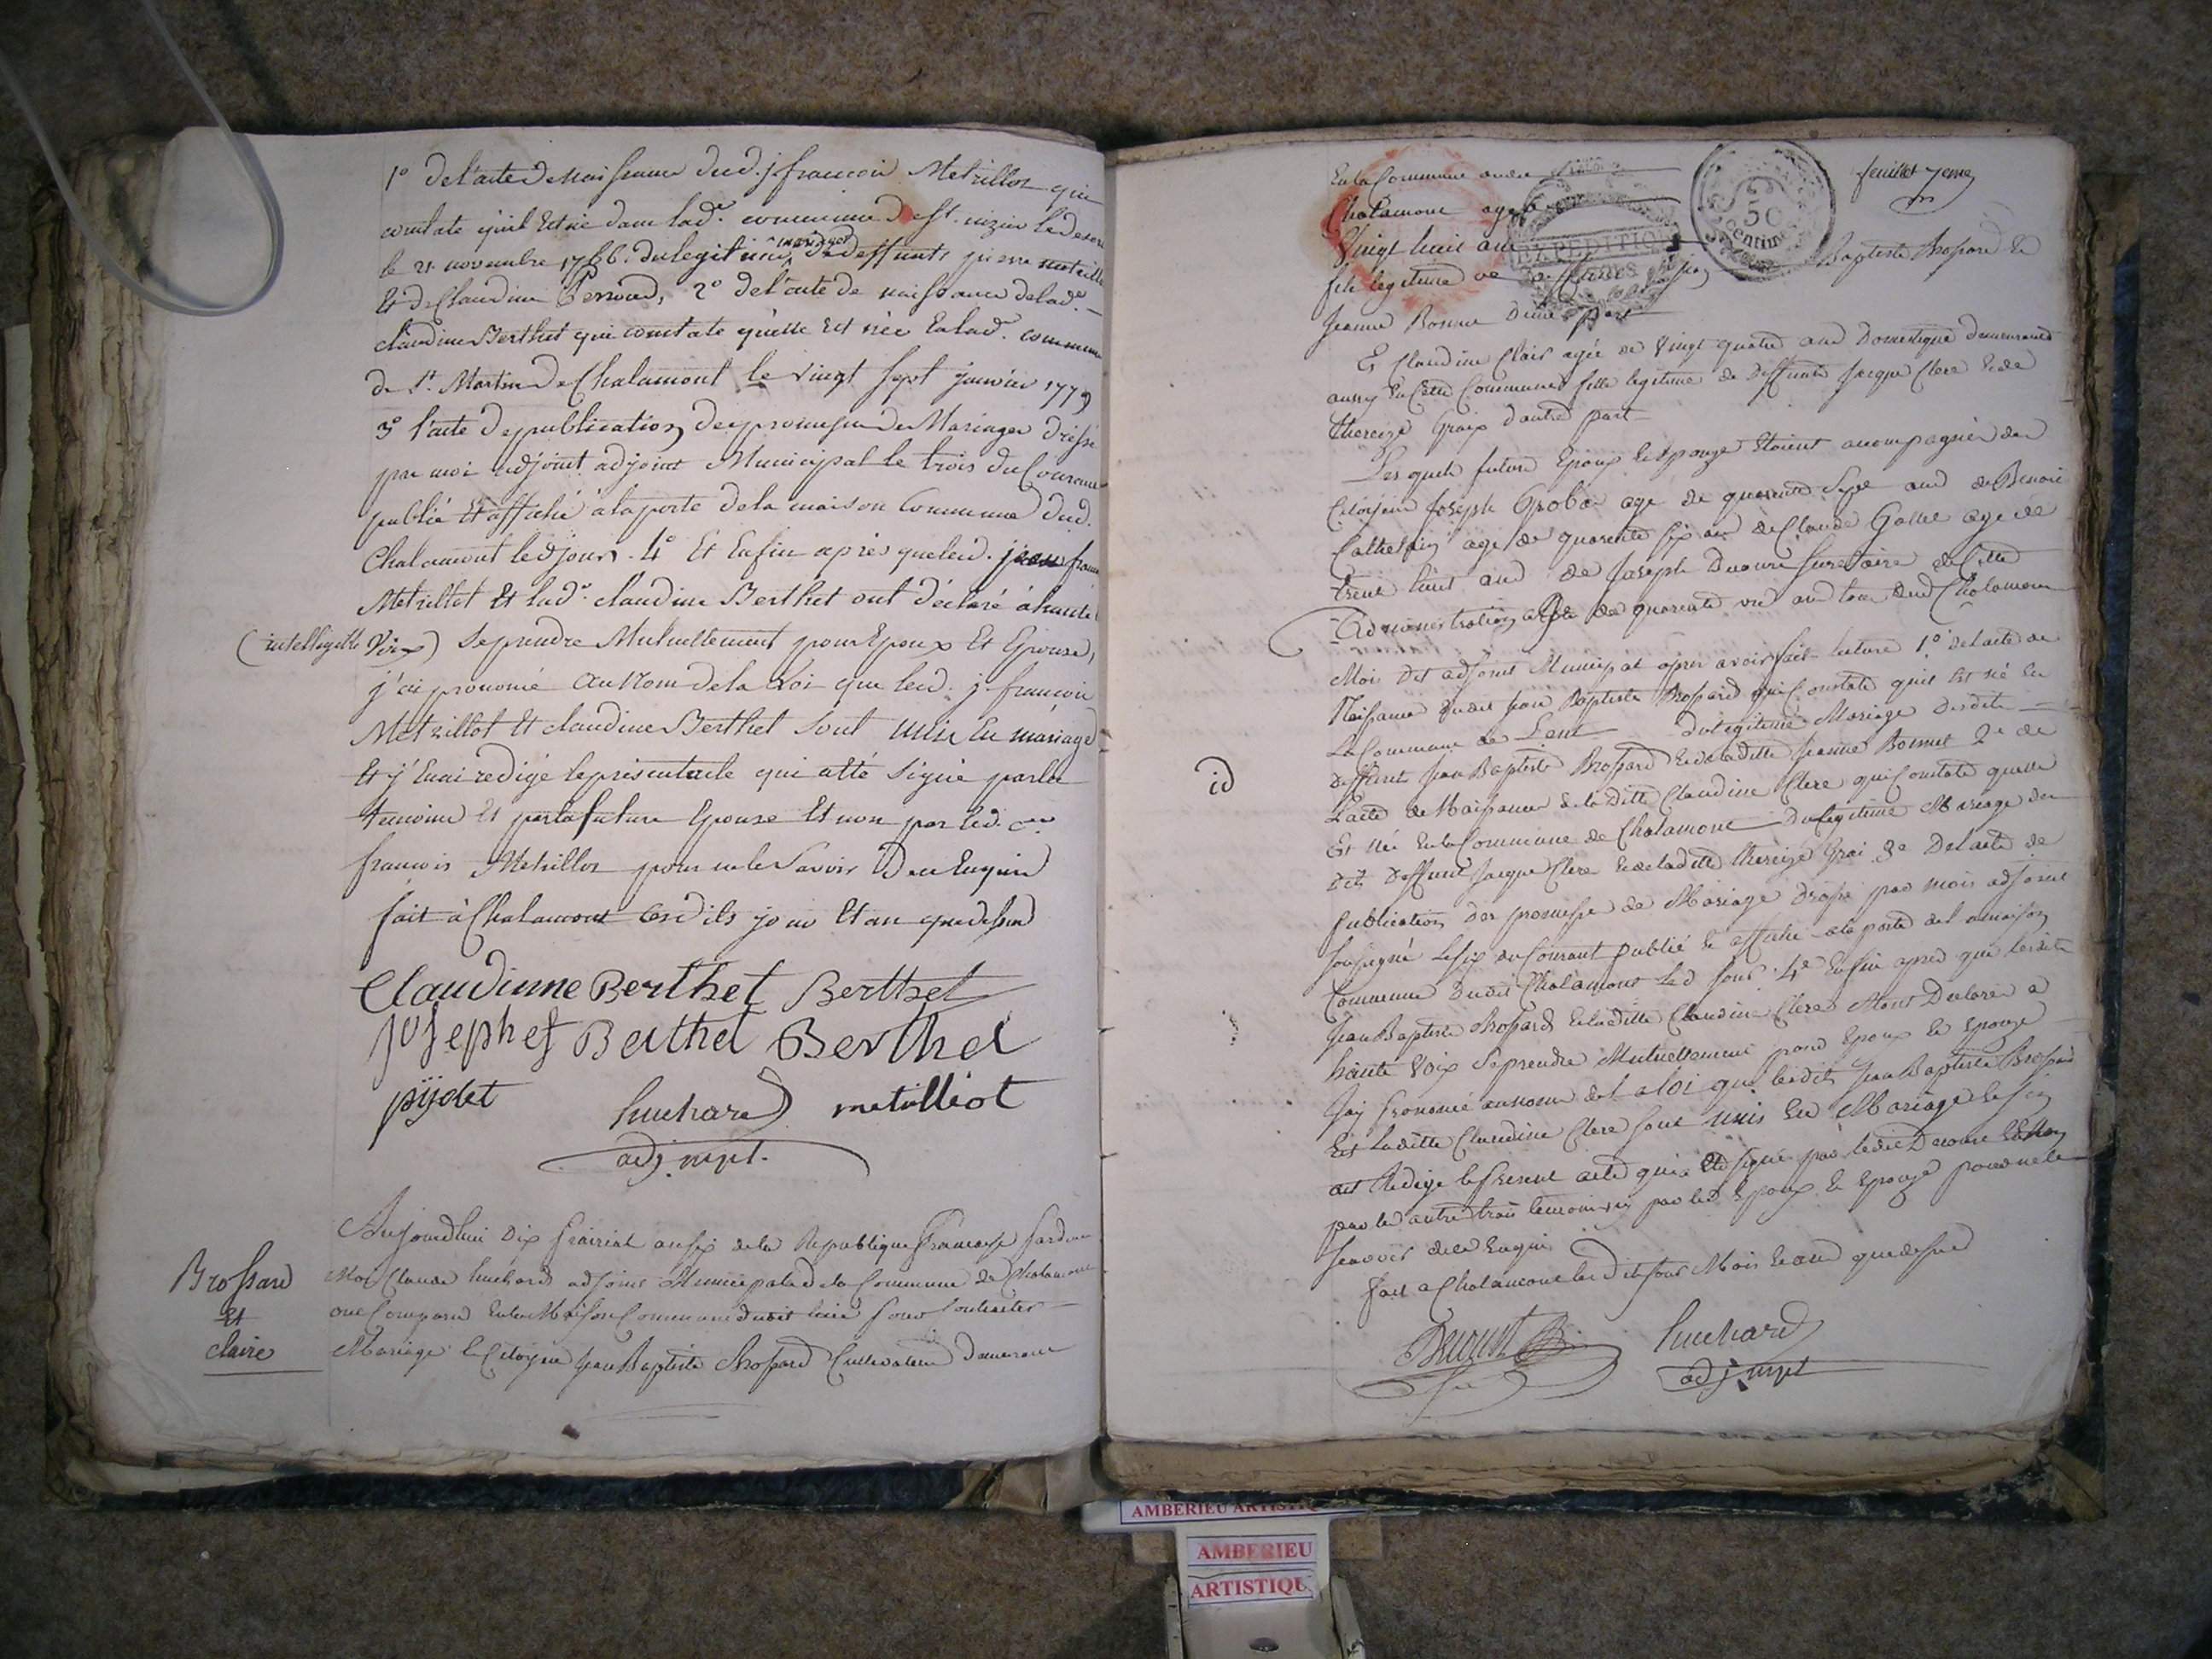 1° de l'acte de naissance dud. j françois Metrillot qui
constate qu'il Est né dans lad.e commune de St. nizier le desert
le 21 novembre 1766. du legitime mariage de deffunts pierre metrillot
Et de Claudine Perroud, 2° de l'acte de naissance de lad.e
claudine Berthet qui constate qu'elle Est née En lad. commune
de St. Martin de Chalamont le vingt sept janvier 1779
3° l'acte de publication de promesse de Mariage dressé
par moi adjoint adjoint Municipal le trois du Courant
publié Et affiché à la porte de la maison Commune dud.
Chalamont led jour. 4° Et Enfin après que led. jean franc
Metrillot Et lad.e claudine Berthet ont déclaré à haute
(intelligible Voix) se prendre Mutuellement pour Epoux Et Epouse,
j'ai prononcé au Nom de la Loi que led. j. françois
Metrillot Et claudine Berthet sont unis En mariage
Et j'En ai redigé le présent acte qui a été signé par les
temoins Et par la future Epouse Et non par led. cen
françois Metrillot pour ne le savoir De ce Enquis
fait à Chalamont lesdits jour Et an que dessus
Claudinne Berthet Berthet
Josephef Berthet Berthel
pijdet huchard metilliot
adj. mpl.
Brossard
Et
claire
Aujourdhui Dix Prairial an six de la Republique Francaise pardevant
Moi Claude huchard adjoint Municipal de la Commune de Chalamont
ont Comparu En la Maison Commune dudit lieu pour Contracter
Mariage le Citoyen Jean Baptiste Brossard Cultivateur demeurant
feuillet 7eme
En la Commune
Chalamont agé de
Vingt huit ans
fils legitime de Baptiste Brossard Et
EXPEDITION
50
Centimes
Jeanne Bonne D'une part
Et Claudine Clair agée de Vingt quatre ans Domestique demeurant
aussy En Cette Commune fille legitime de Deffunt Jacque Clere Et de
thereize Graix d'autre part
Les quels futurs Epoux Et Epouze Etoient accompagnés des
Citoyens Joseph age de quarente Sept ans de Benoit
age de quarente six ans de Claude Gallet age de
trente huit ans de Joseph Ducure Secretaire de Cette
Administration age de quarente un ans tous dud Chalamont
Moi Dit adjoint Municipal apres avoir fait lecture 1° de lacte de
Naissance dudit Jean Baptiste Brossard qui Constate qu'il Est né En
La Commune de Lent du legitime Mariage desdits
id
Deffunt Jean Baptiste Brossard Et de laditte Jeanne Bonnet 2e de
l'acte de Naissance de la Ditte Claudine Clere qui Constate quelle
Est née En la Commune de Chalamont Du legitime Mariage des
dits Deffunt Jacque Clere Et de laditte thereize Grai 3e De lacte de
publication des promesse de Mariage Dressé par mois adjoint
soussigné Le six du Courant publié Et affiché a la porte de la maison
Commune dudit Chalamont Led Jour 4e Enfin apres que lesdits
Jean Baptiste Brossard Et laditte Claudine Clere Mont Declarés a
haute Voix Se prendre Mutuellement pour Epoux Et Epouze
Jay prononcé au nom de la loi que lesdits Jean Baptiste Brossard
Et laditte Claudine Clere sont unis En Mariage Et Jen
ait Redigé le present acte qui a Eté signé par ledit Ducure Et Non
par les autre trois temoins ny par les Epoux Et Epouze pour ne le
scavoir de ce Enquis
fait a Chalamont les Dits Jour Mois Et an que dessus
huchard
adj. mpl
AMBERIEU ARTISTIQ
AMBERIEU
ARTISTIQU